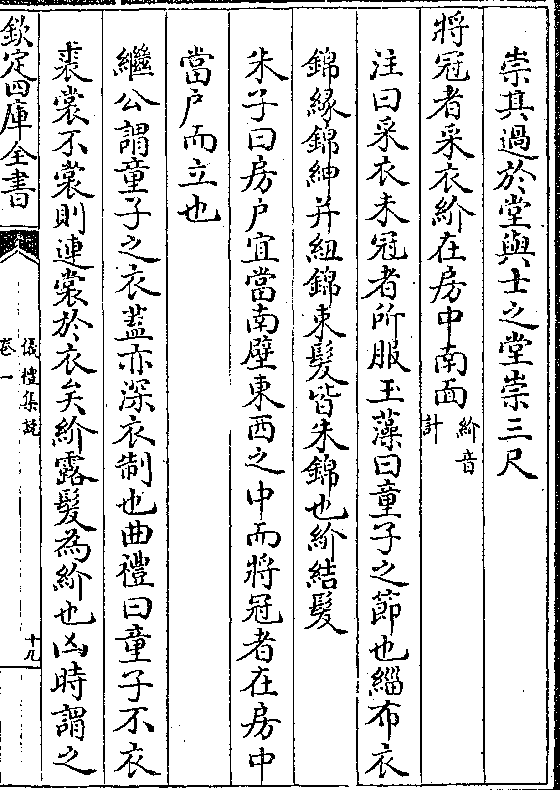 崇其過於堂與士之堂崇三尺
將冠者采衣紒在房中南面紒音計
注曰采衣未冠者所服玉藻曰童子之節也緇布衣
錦緣錦紳并紐錦束髮皆朱錦也紒結髮
朱子曰房戶宜當南壁東西之中而將冠者在房中
當戶而立也
繼公謂童子之衣蓋亦深衣制也曲禮曰童子不衣
裘裳不裳則連裳於衣矣紒露髮為紒也凶時謂之
欽定四庫全書
儀禮集說
卷一
十九